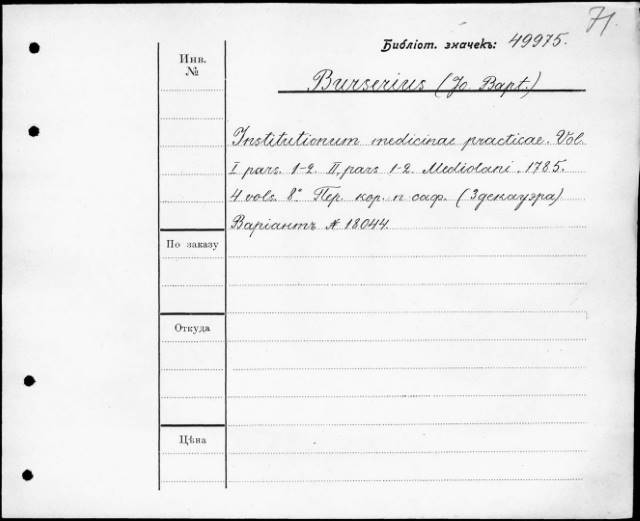 71.
Библіот. значекъ: 49975.
Инв.
№
Burserius (Jo Bapt.)
Institutionum medicinae practicae. Vol.
I pars. 1-2. II, pars 1-2. Mediolani. 1785.
4 vols. 8° Пер. кор. п саф. (Здекауэра)
Варіантъ № 18044.
По заказу
Откуда
Цѣна